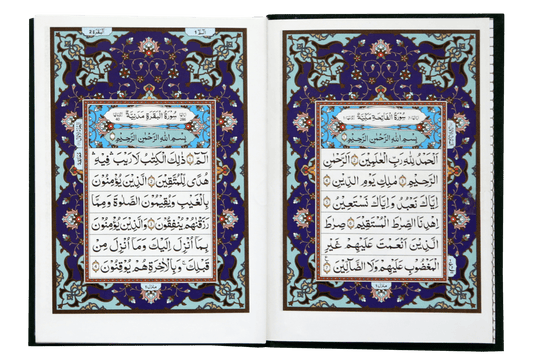 سُوْرَةُ الْفَاتِحَةِ مَكِّيَّةٌ
بِسْمِ اللهِ الرَّحْمٰنِ الرَّحِيْمِ
اَلْحَمْدُ لِلّٰهِ رَبِّ الْعٰلَمِيْنَ ۙ الرَّحْمٰنِ
الرَّحِيْمِ ۙ مٰلِكِ يَوْمِ الدِّيْنِ ؕ
اِيَّاكَ نَعْبُدُ وَ اِيَّاكَ نَسْتَعِيْنُ ؕ
اِهْدِنَا الصِّرَاطَ الْمُسْتَقِيْمَ ۙ صِرَاطَ
الَّذِيْنَ اَنْعَمْتَ عَلَيْهِمْ غَيْرِ
الْمَغْضُوْبِ عَلَيْهِمْ وَلَا الضَّآلِّيْنَ
سُوْرَةُ الْبَقَرَةِ مَدَنِيَّةٌ
بِسْمِ اللهِ الرَّحْمٰنِ الرَّحِيْمِ
الٓمّٓ ۚ ذٰلِكَ الْكِتٰبُ لَا رَيْبَ فِيْهِ
هُدًى لِّلْمُتَّقِيْنَ ۙ الَّذِيْنَ يُؤْمِنُوْنَ
بِالْغَيْبِ وَيُقِيْمُوْنَ الصَّلٰوةَ وَمِمَّا
رَزَقْنٰهُمْ يُنْفِقُوْنَ ۙ وَالَّذِيْنَ يُؤْمِنُوْنَ
بِمَآ اُنْزِلَ اِلَيْكَ وَمَآ اُنْزِلَ مِنْ
قَبْلِكَ ۚ وَبِالْاٰخِرَةِ هُمْ يُوْقِنُوْنَ